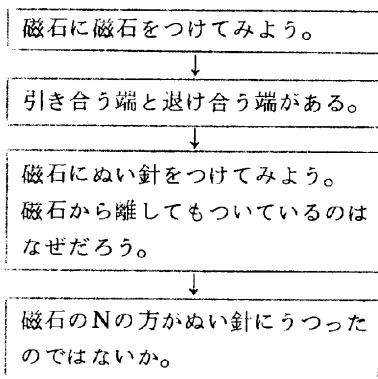 磁石に磁石をつけてみよう。
引き合う端と退け合う端がある。
磁石にぬい針をつけてみよう。
磁石から離してもついているのは
なぜだろう。
磁石のNの方がぬい針にうつった
のではないか。